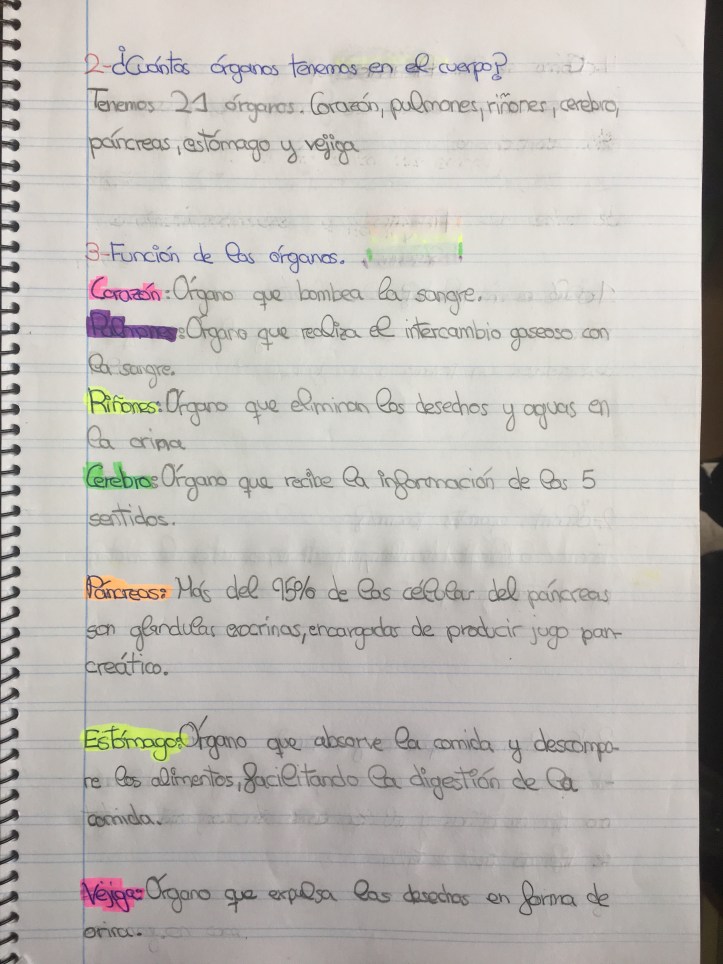 2-¿Cuántos órganos tenemos en el cuerpo?
Tenemos 21 órganos. Corazón, pulmones, riñones, cerebro,
páncreas, estómago y vejiga
3-Función de los órganos.
Corazón: Órgano que bombea la sangre.
Pulmones: Órgano que realiza el intercambio gaseoso con
la sangre.
Riñones: Órgano que eliminan los desechos y aguas en
la orina
Cerebro: Órgano que recibe la información de los 5
sentidos.
Páncreas: Más del 95% de las célular del páncreas
son glandulas exocrinas, encargadas de producir jugo pan-
creático.
Estómago: Órgano que absorve la comida y descompo-
ne los alimentos, facilitando la digestión de la
comida.
Vejiga: Órgano que expulsa los desechos en forma de
orina.